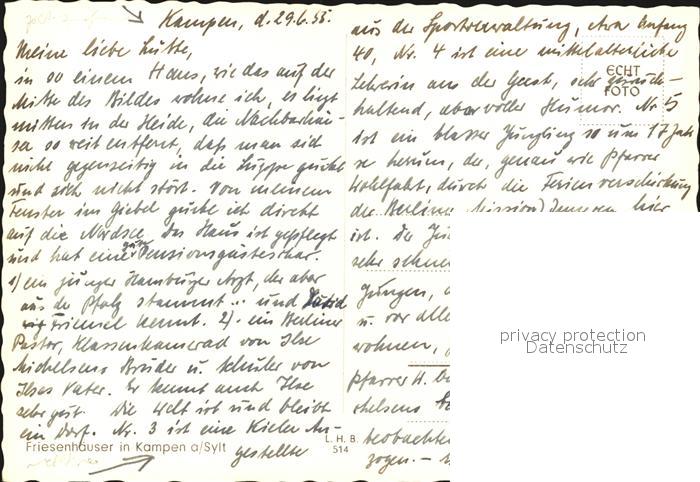 Kampen, d. 29.6.55.
Meine liebe Lutte,
in so einem Haus, wie das auf der
Mitte des Bildes wohne ich, es liegt
mitten in der Heide, die Nachbarhäu-
ser so weit entfernt, daß man sich
nicht gegenseitig in die Suppe guckt
und sich nicht stört. Von meinem
Fenster im Giebel gucke ich direkt
auf die Nordsee. Das Haus ist gepflegt
und hat eine Pensionsgästeschar.
1) ein junger Hamburger Arzt, der aber
aus der Pfalz stammt.. und
Friemel kennt. 2) ein Berliner
Pastor, Klassenkamerad von Ilse
Michelsens Bruder u. Schüler von
Ilses Vater. Er kennt auch Ilse
sehr gut. Die Welt ist und bleibt
ein Dorf. Nr. 3 ist eine Kieler An-
gestellte
Friesenhäuser in Kampen a/Sylt
L. H. B.
514
aus der Sportverwaltung, etwa Anfang
40, Nr. 4 ist eine mittelalterliche
Lehrerin aus der Geest, sehr
haltend, aber voller Humor. Nr 5
ist ein blasser Jüngling so um 17 Jah
re herum, der, genau wie Pfarrer
Wohlfahrt, durch die Ferienverschickung
der Berliner Mission hier
ist. Der
sehr
Jungen,
u. vor alle
wohnen,
Pfarrer H.
chelsens
beobachte
zogen. –
ECHT
FOTO
privacy protection
Datenschutz